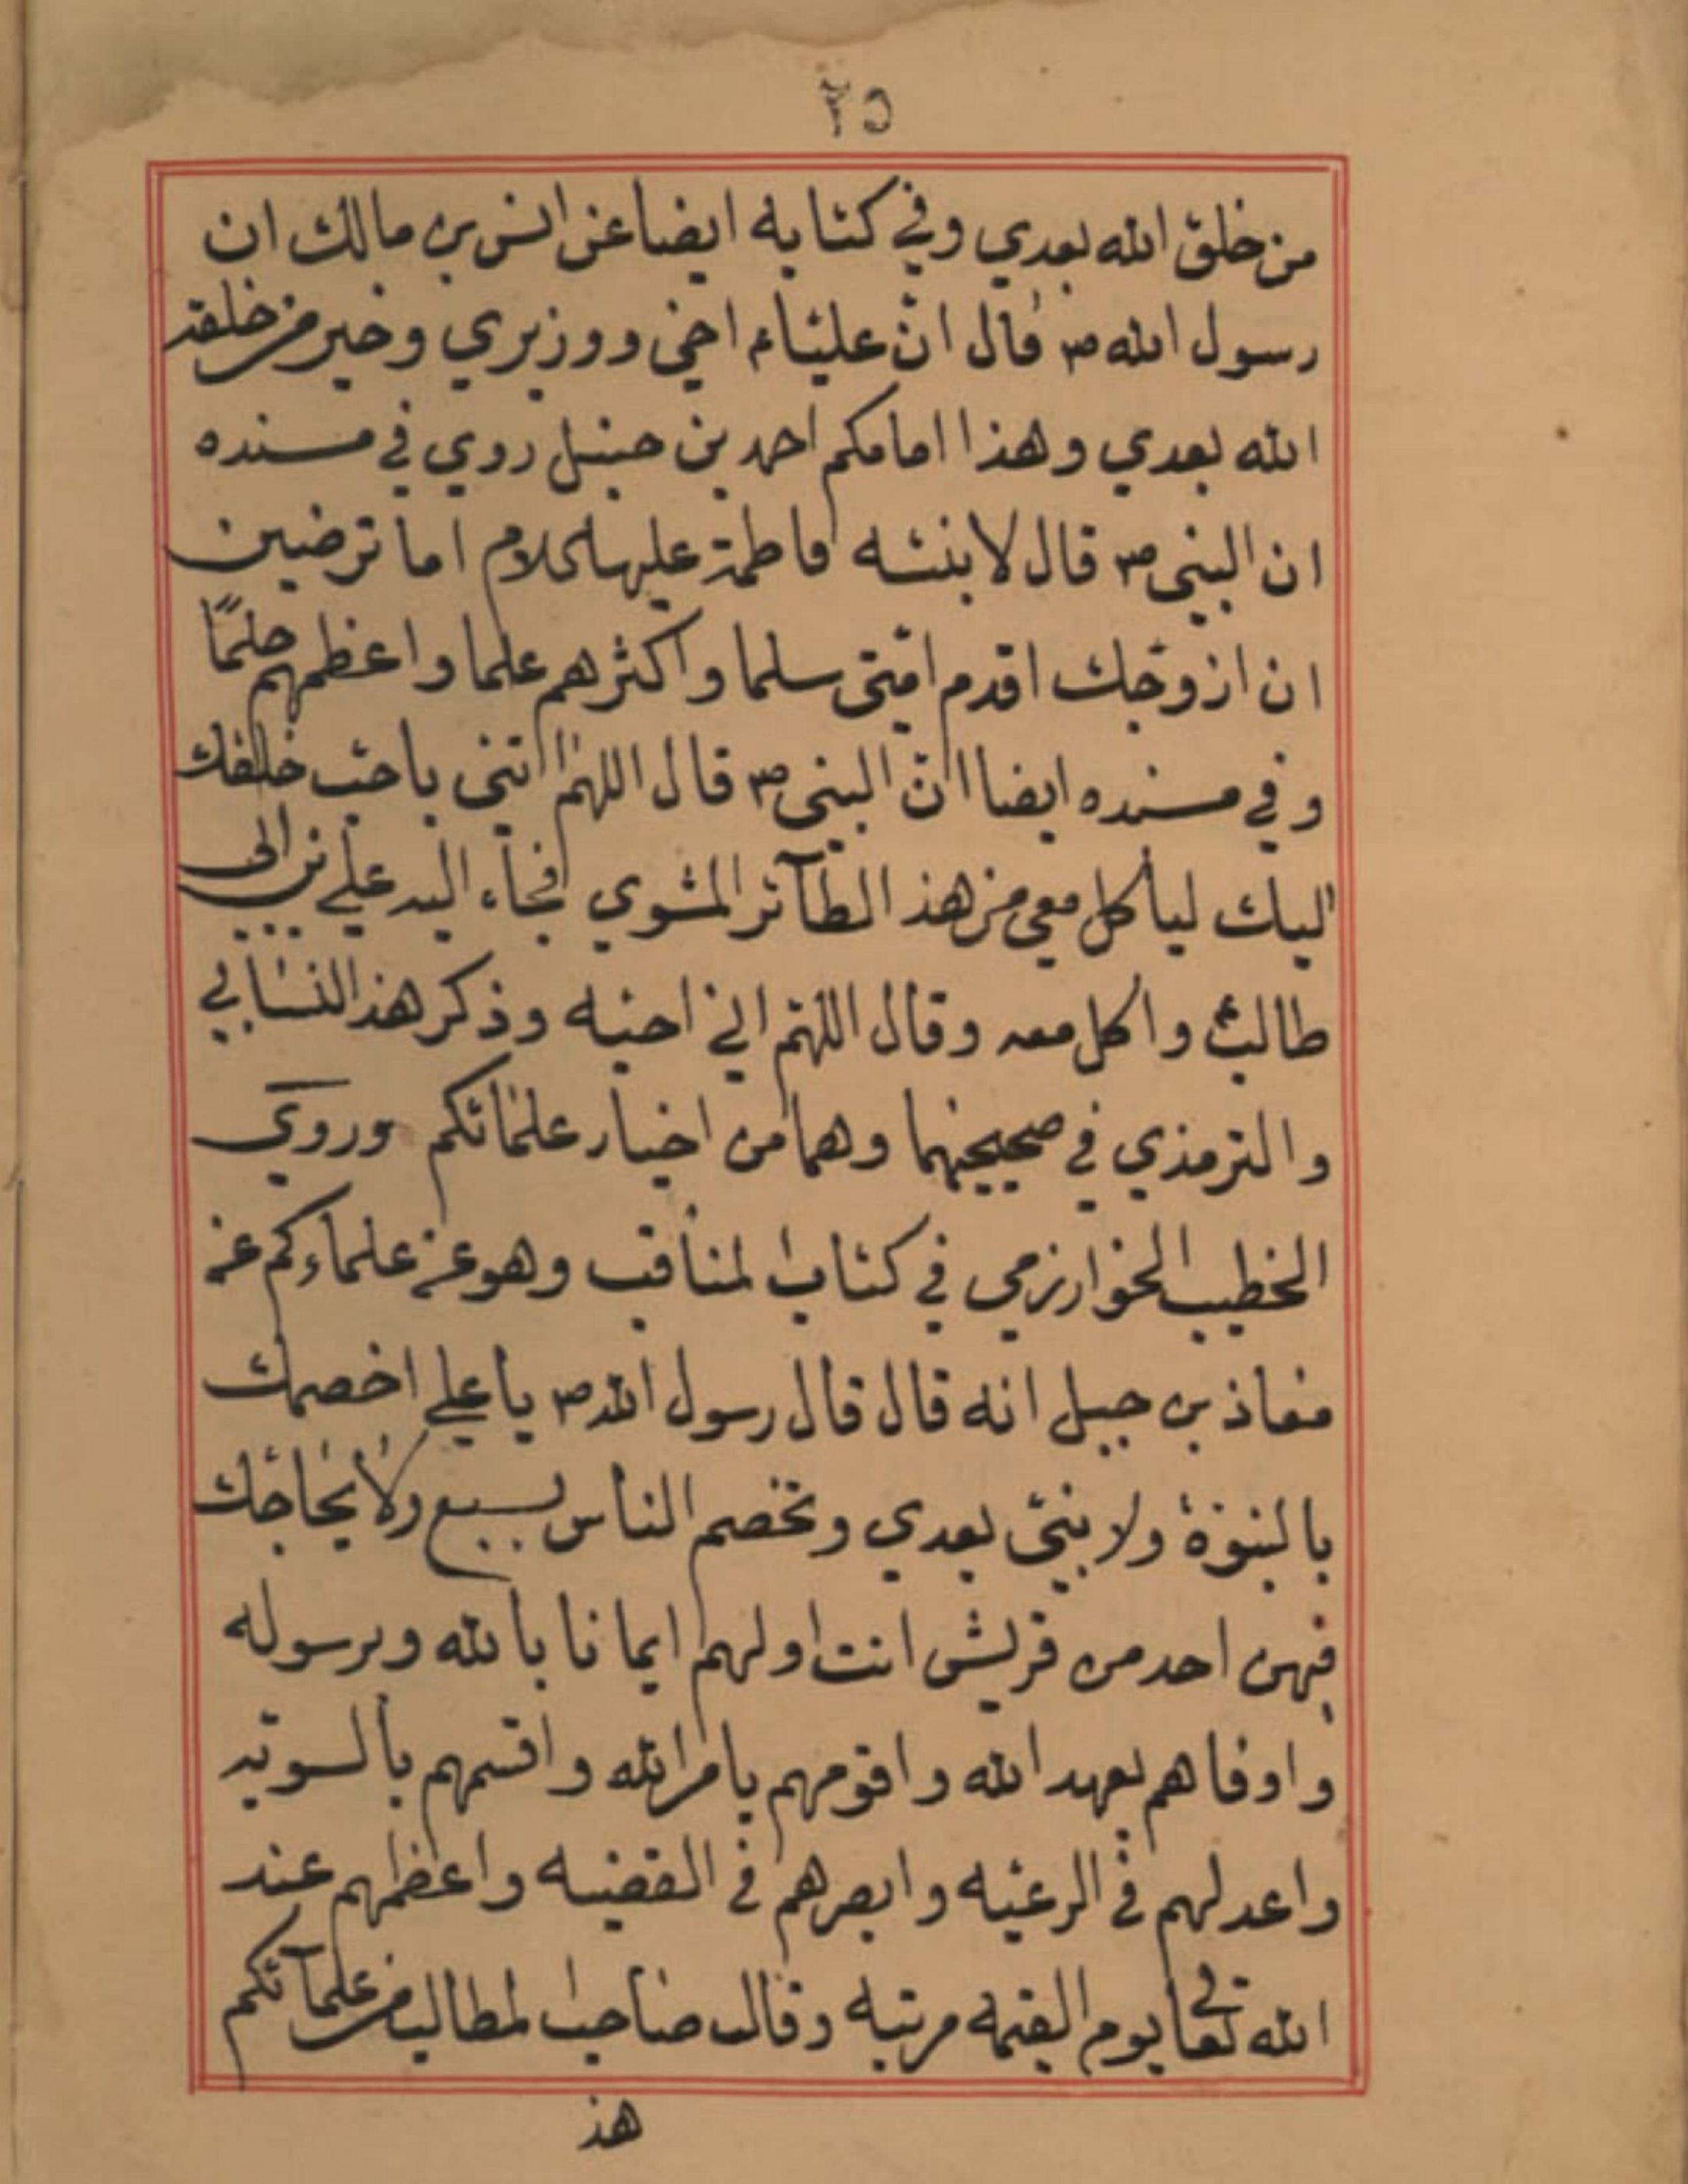 ٢٥
من خلق الله بعدي وفي كتابه ايضا عن انس بن مالك ان
رسول الله ص قال انّ عليّاء اخي ووزيري وخير من خلقه
الله بعدي وهذا امامكم احمد بن حنبل روي في مسنده
ان النبي ص قال لابنته فاطمة عليها السلام اما ترضين
ان ازوّجك اقدم امّتي سلما واكثرهم علما واعظمهم حلمًا
وفي مسنده ايضا انّ النبي ص قال اللهم ائتني باحب خلقك
اليك لياكل معي من هذ الطآئر المشوي فجاء اليه علي بن ابي
طالب ع واكل معه وقال اللهم اني احبه وذكر هذ النسابي
والترمذي في صحيحيهما وهما من اخيار علمائكم وروي
الخطيب الخوارزمي في كتاب المناقب وهو عن علماءكم عن
معاذ بن جبل انه قال قال رسول الله ص يا علي اخصمك
بالنبوّة ولا نبيّ بعدي وتخصم الناس بسبع ولا يحاجّك
فيهن احد من قريش انت اولهم ايمانا بالله وبرسوله
واوفاهم بعهد الله واقومهم بامر الله واقسمهم بالسويّه
واعدلهم في الرعيّه وابصرهم في القضيه واعظمهم عند
الله تعالى يوم القيمه مرتبه وقال صاحب المطالب من علمآئكم
هذ